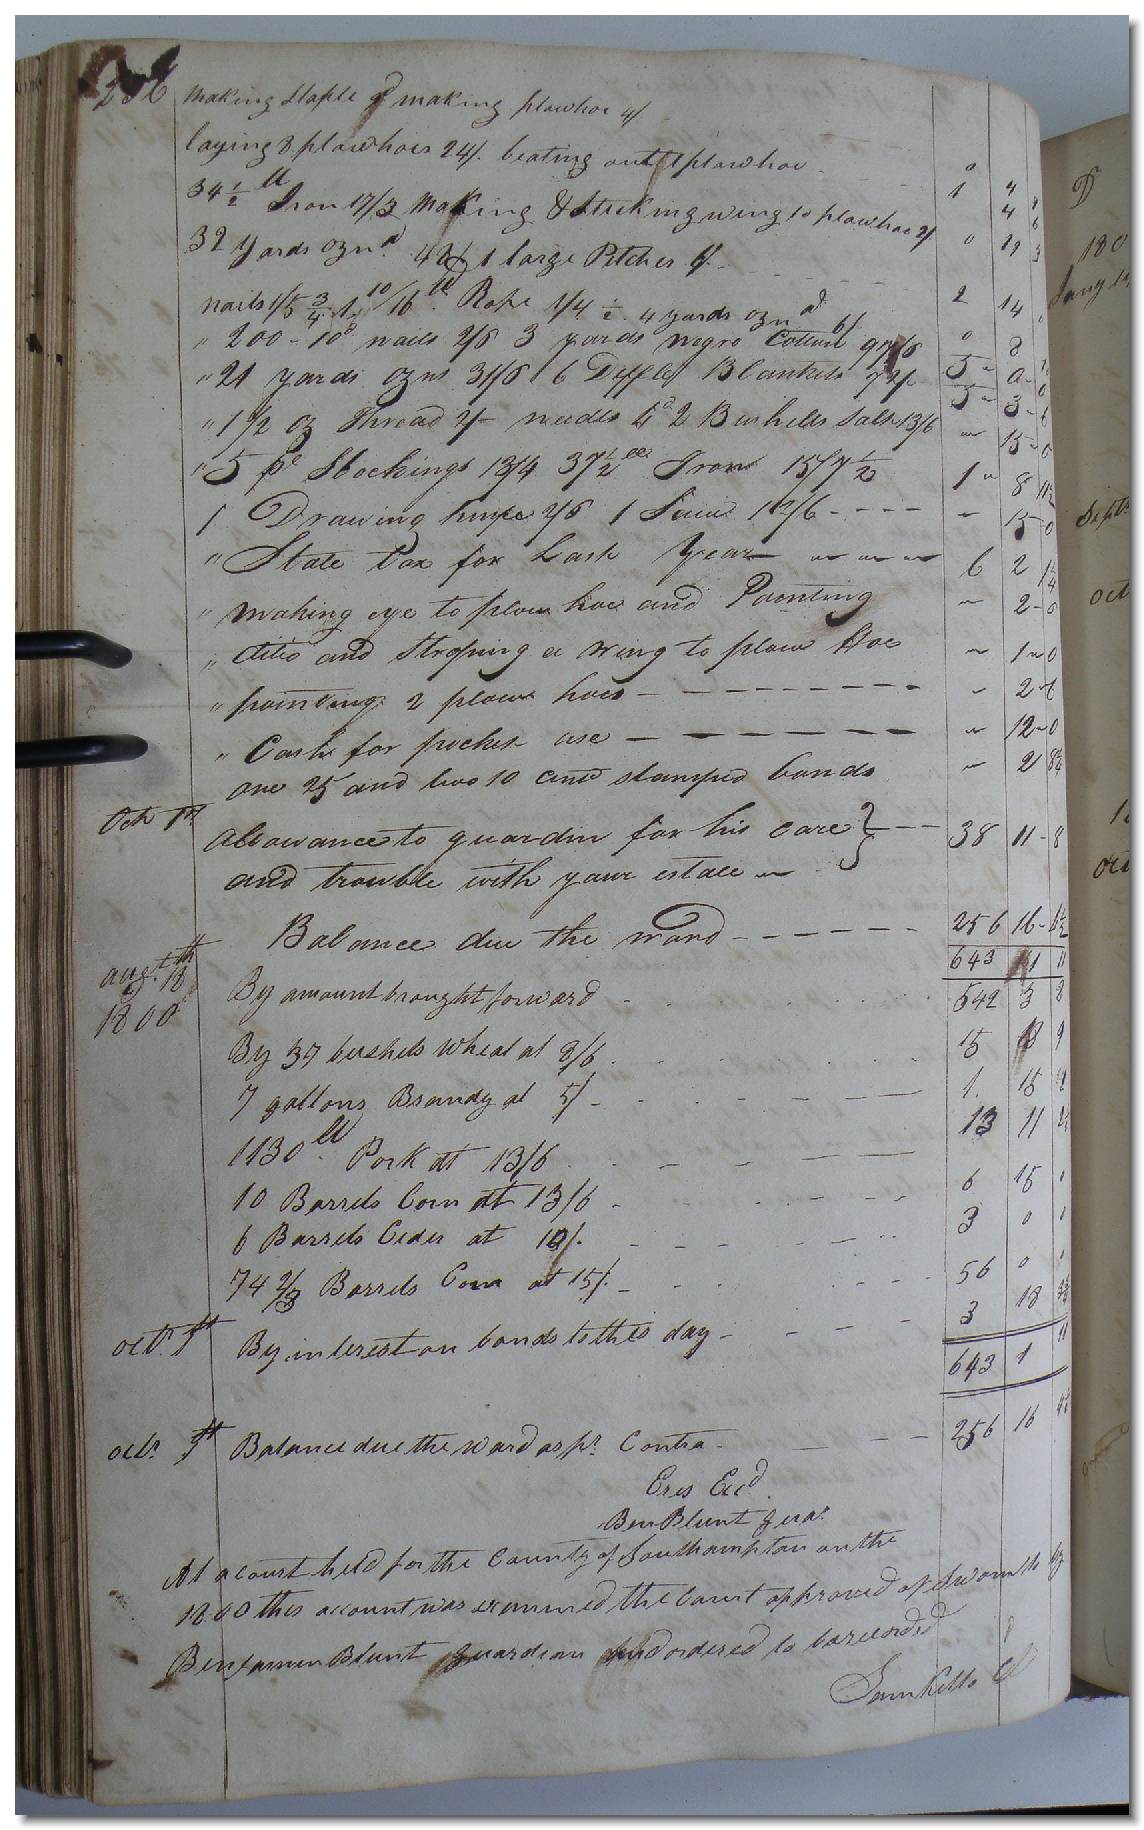 making Staple & making plowhoe 4/
laying 8 plowhoes 24/. beating out 1 plowhoe 1 4
34 1/2 ll Iron 17/3 Making & Sticking wing to plowhoe 2/ 0 19 3
32 yards ozn.d 48/ 1 large Pitcher 6/. 2 14
nails 1/5 3/4 . 1 10/16 ll Rope 1/4 1/2 . 4 yards ozn.d 6/ 0 8
" 200 - 10d nails 2/6 3 yards negro Cotton 97/6 5 " 0 -
" 21 yards ozns 31/6 6 Duffle Blankets 72/- 5 " 3 - 6
" 1 1/2 oz Thread 2/- needles 2 Bushells Salt 13/6 " 15 - 0
" 5 pr Stockings 13/4 37 1/2 ll Iron 15/7 1/2 1 " 8 11 1/2
1 Drawing knife 2/6 1 12/6 - - - - " 15 - 0
" State tax for Last Year 6 2 1 1/4
" making eye to plow hoe and Pointing " 2 - 0
" ditto and Stroping a wing to plow Hoe " 1 " 0
" pointing 2 plow hoes - - - - - - " 2 - 6
" Cash for pocket use - - - - - " 12 - 0
one 25 and two 10 cent stamped bonds " 2 8 1/4
Oct 1st allowance to guardin for his care } - - 38 11 - 8
and trouble with your estate
Balance due the ward - - - - - - 256 16 - 4 1/2
643 1 11
Augt. 18th By amount brought forward - 542 3 8
1800
By 37 bushels wheat at 8/6 15 9
7 gallons Brandy at 5/ - 1. 15
1130 ll. Pork at 13/6 13 11
10 Barrels Corn at 13/6 - 6 15
6 Barrels Cider at 10/. 3 0
74 2/3 Barrels Corn at 15/. - 56 0
octr. 1st By interest on bonds to this day - 3 18
643 1 11
octr. 1st Balance due the ward as pr. Contra - 256 16 4 1/2
Ers Exd.
Ben Blunt Guar.
At a court held for the County of Southampton on the
1800 this account was examined the Court approved of Sworn to by
Benjamin Blunt guardian and ordered to be recorded
Sam Kello